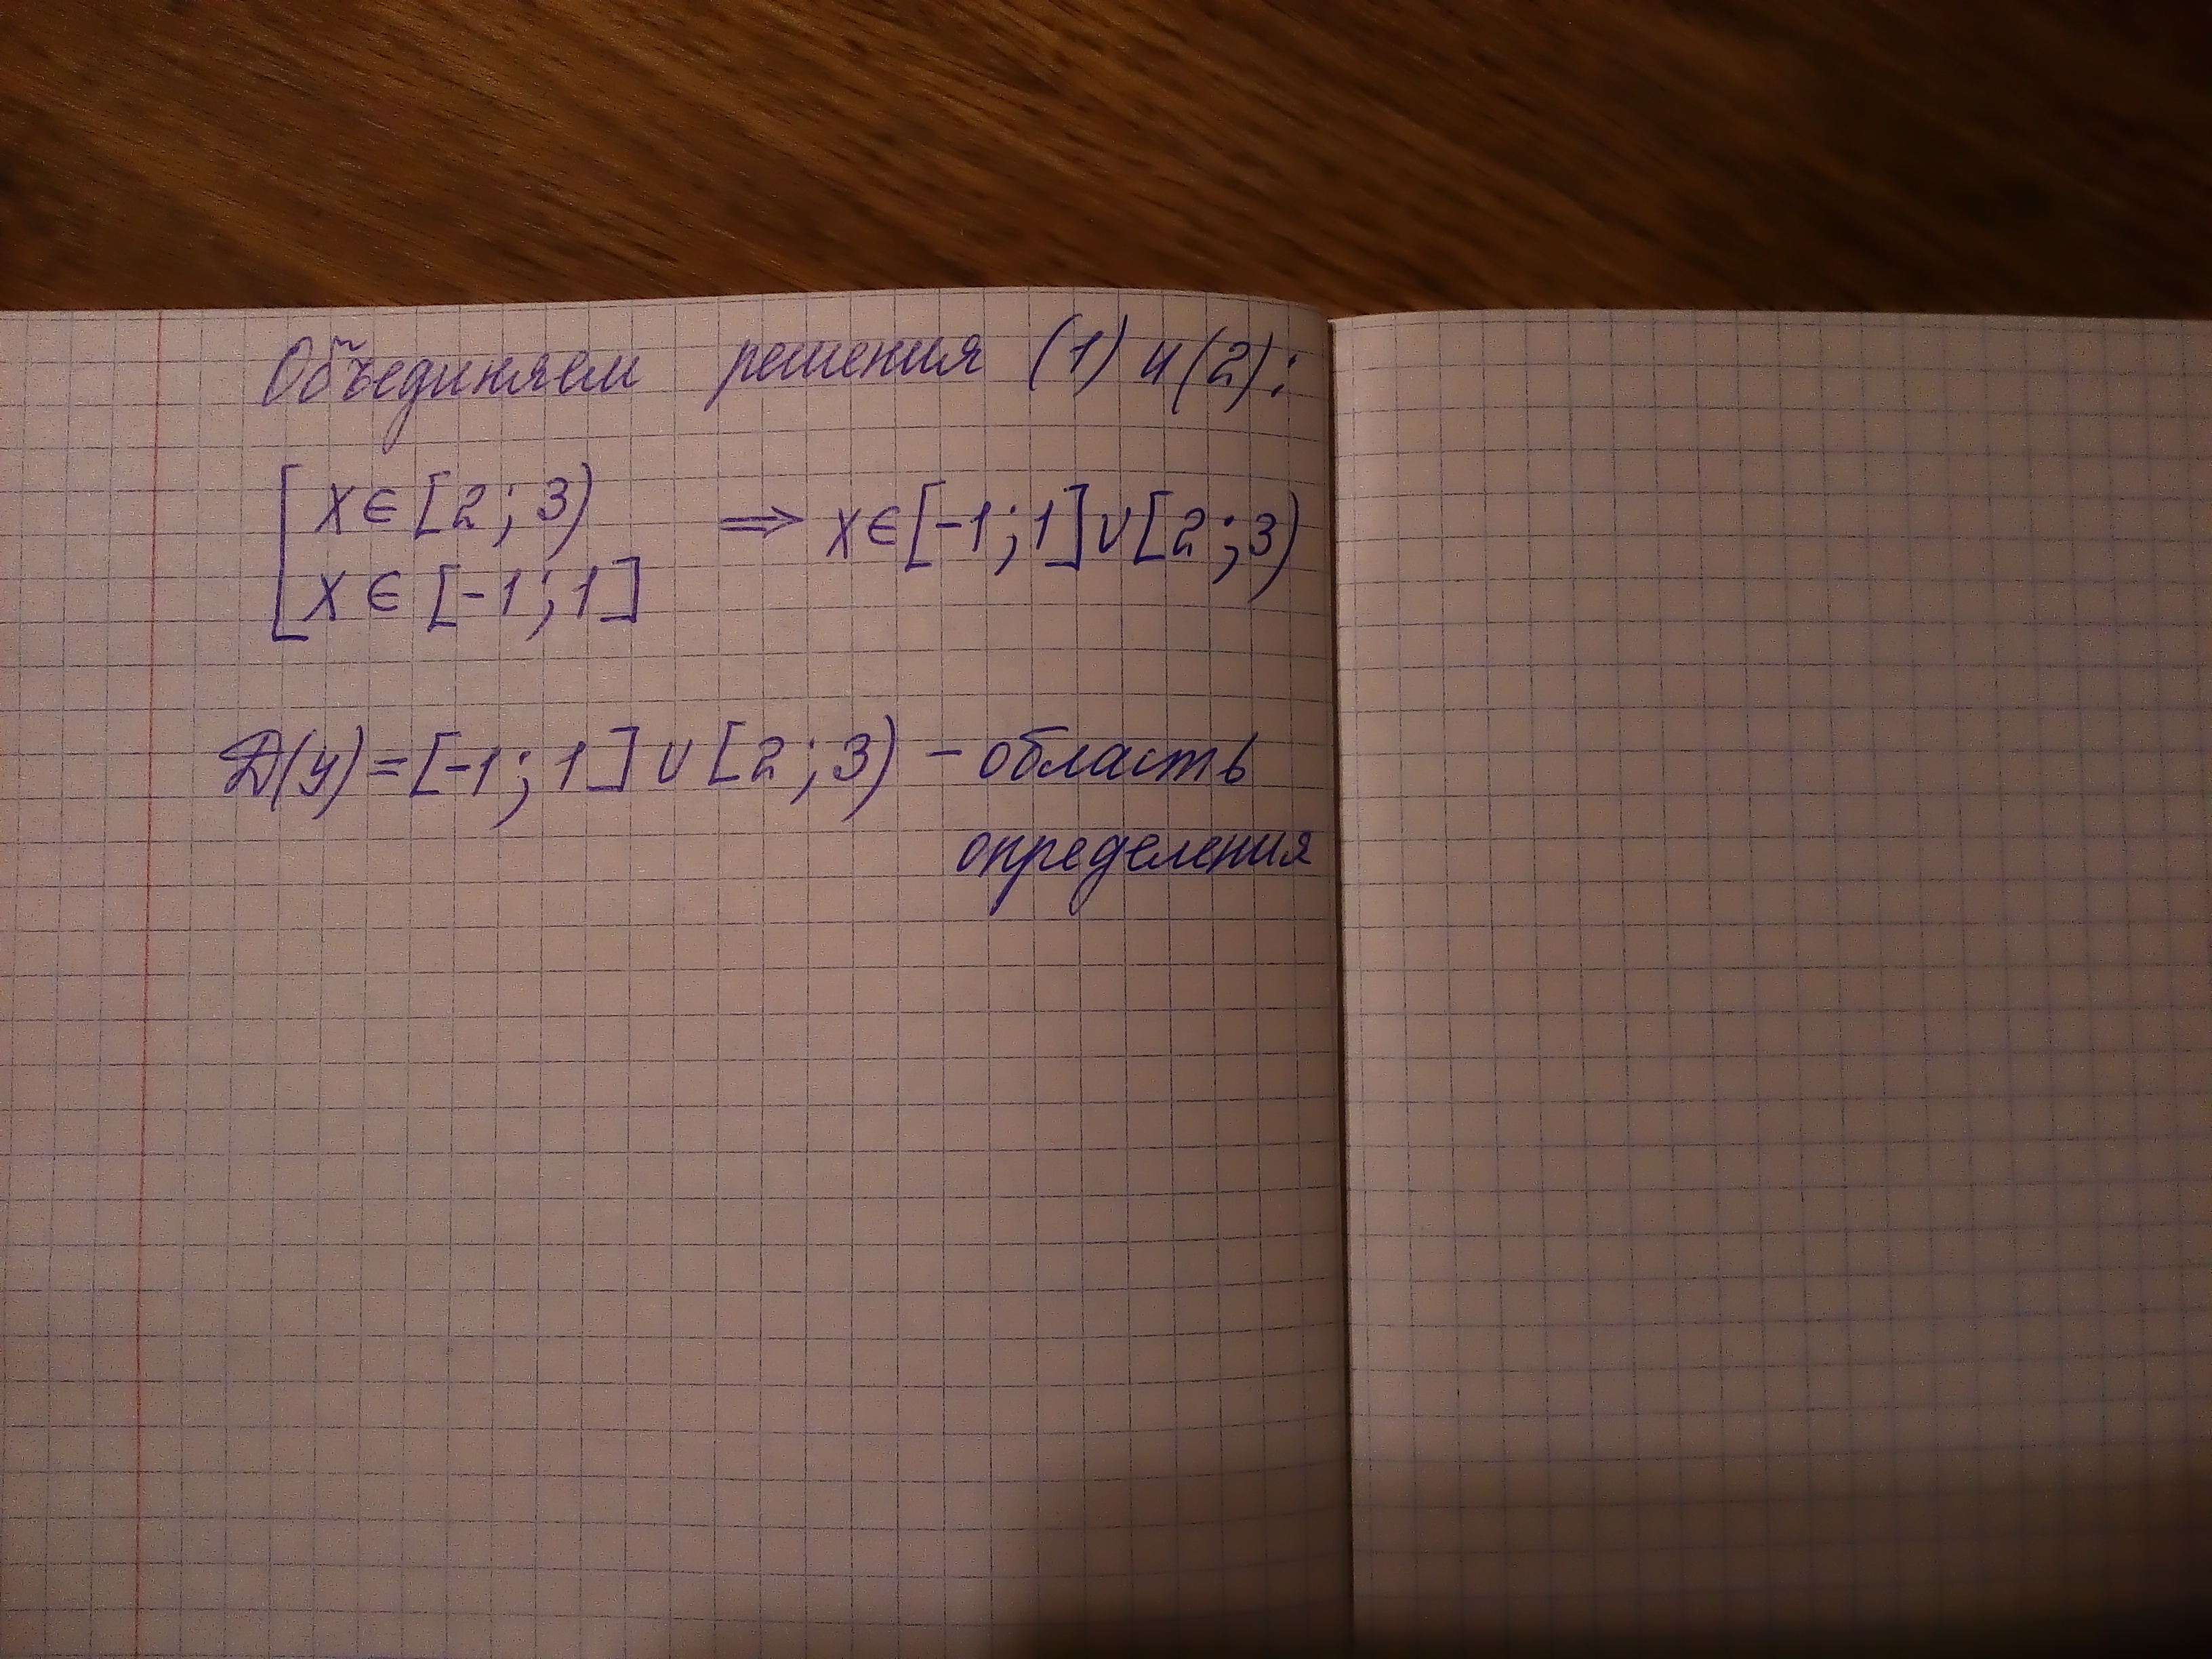 Объединяем решения (1) и (2):
x∈[2;3)
⟹ x∈[-1;1]∪[2;3)
x∈[-1;1]
Д(y)=[-1;1]∪[2;3) – область
определения